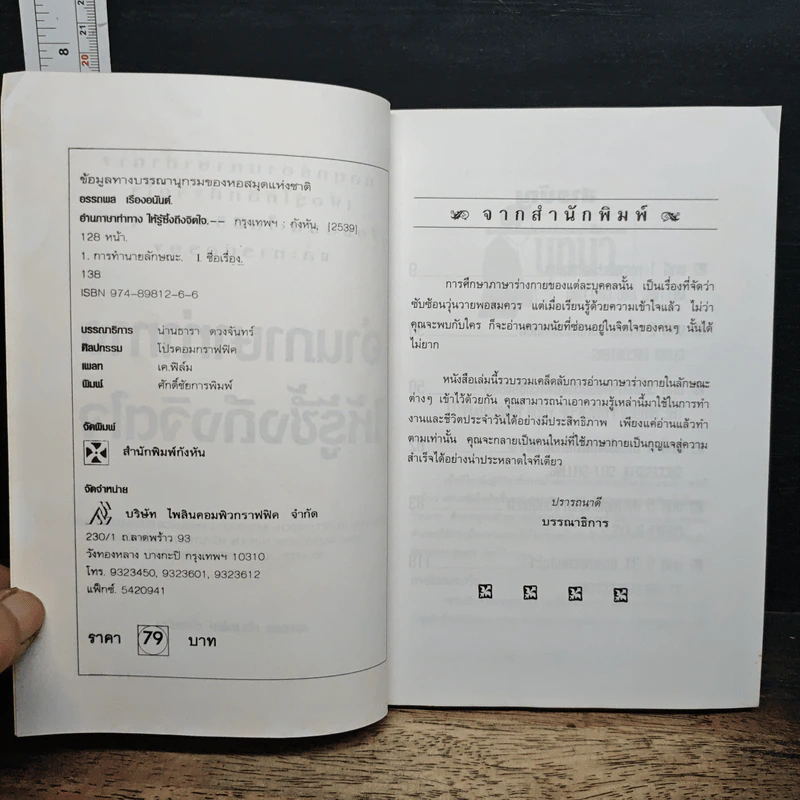 8
21
20
ข้อมูลทางบรรณานุกรมของหอสมุดแห่งชาติ
อรรถพล เรืองอนันต์.
อ่านภาษาท่าทาง ให้รู้ซึ้งถึงจิตใจ.-- กรุงเทพฯ : กังหัน, [2539]
128 หน้า.
1. การทำนายลักษณะ. I. ชื่อเรื่อง.
138
ISBN 974-89812-6-6
บรรณาธิการ น่านธารา ดวงจันทร์
ศิลปกรรม โปรคอมกราฟฟิค
เพลท เค.ฟิล์ม
พิมพ์ ศักดิ์ชัยการพิมพ์
จัดพิมพ์
สำนักพิมพ์กังหัน
จัดจำหน่าย
บริษัท ไพลินคอมพิวกราฟฟิค จำกัด
230/1 ถ.ลาดพร้าว 93
วังทองหลาง บางกะปิ กรุงเทพฯ 10310
โทร. 9323450, 9323601, 9323612
แฟ็กซ์. 5420941
ราคา 79 บาท
จากสำนักพิมพ์
การศึกษาภาษาร่างกายของแต่ละบุคคลนั้น เป็นเรื่องที่จัดว่า
ซับซ้อนวุ่นวายพอสมควร แต่เมื่อเรียนรู้ด้วยความเข้าใจแล้ว ไม่ว่า
คุณจะพบกับใคร ก็จะอ่านความนัยที่ซ่อนอยู่ในจิตใจของคนๆ นั้นได้
ไม่ยาก
หนังสือเล่มนี้รวบรวมเคล็ดลับการอ่านภาษาร่างกายในลักษณะ
ต่างๆ เข้าไว้ด้วยกัน คุณสามารถนำเอาความรู้เหล่านี้มาใช้ในการทำ
งานและชีวิตประจำวันได้อย่างมีประสิทธิภาพ เพียงแค่อ่านแล้วทำ
ตามเท่านั้น คุณจะกลายเป็นคนใหม่ที่ใช้ภาษากายเป็นกุญแจสู่ความ
สำเร็จได้อย่างน่าประหลาดใจทีเดียว
ปรารถนาดี
บรรณาธิการ